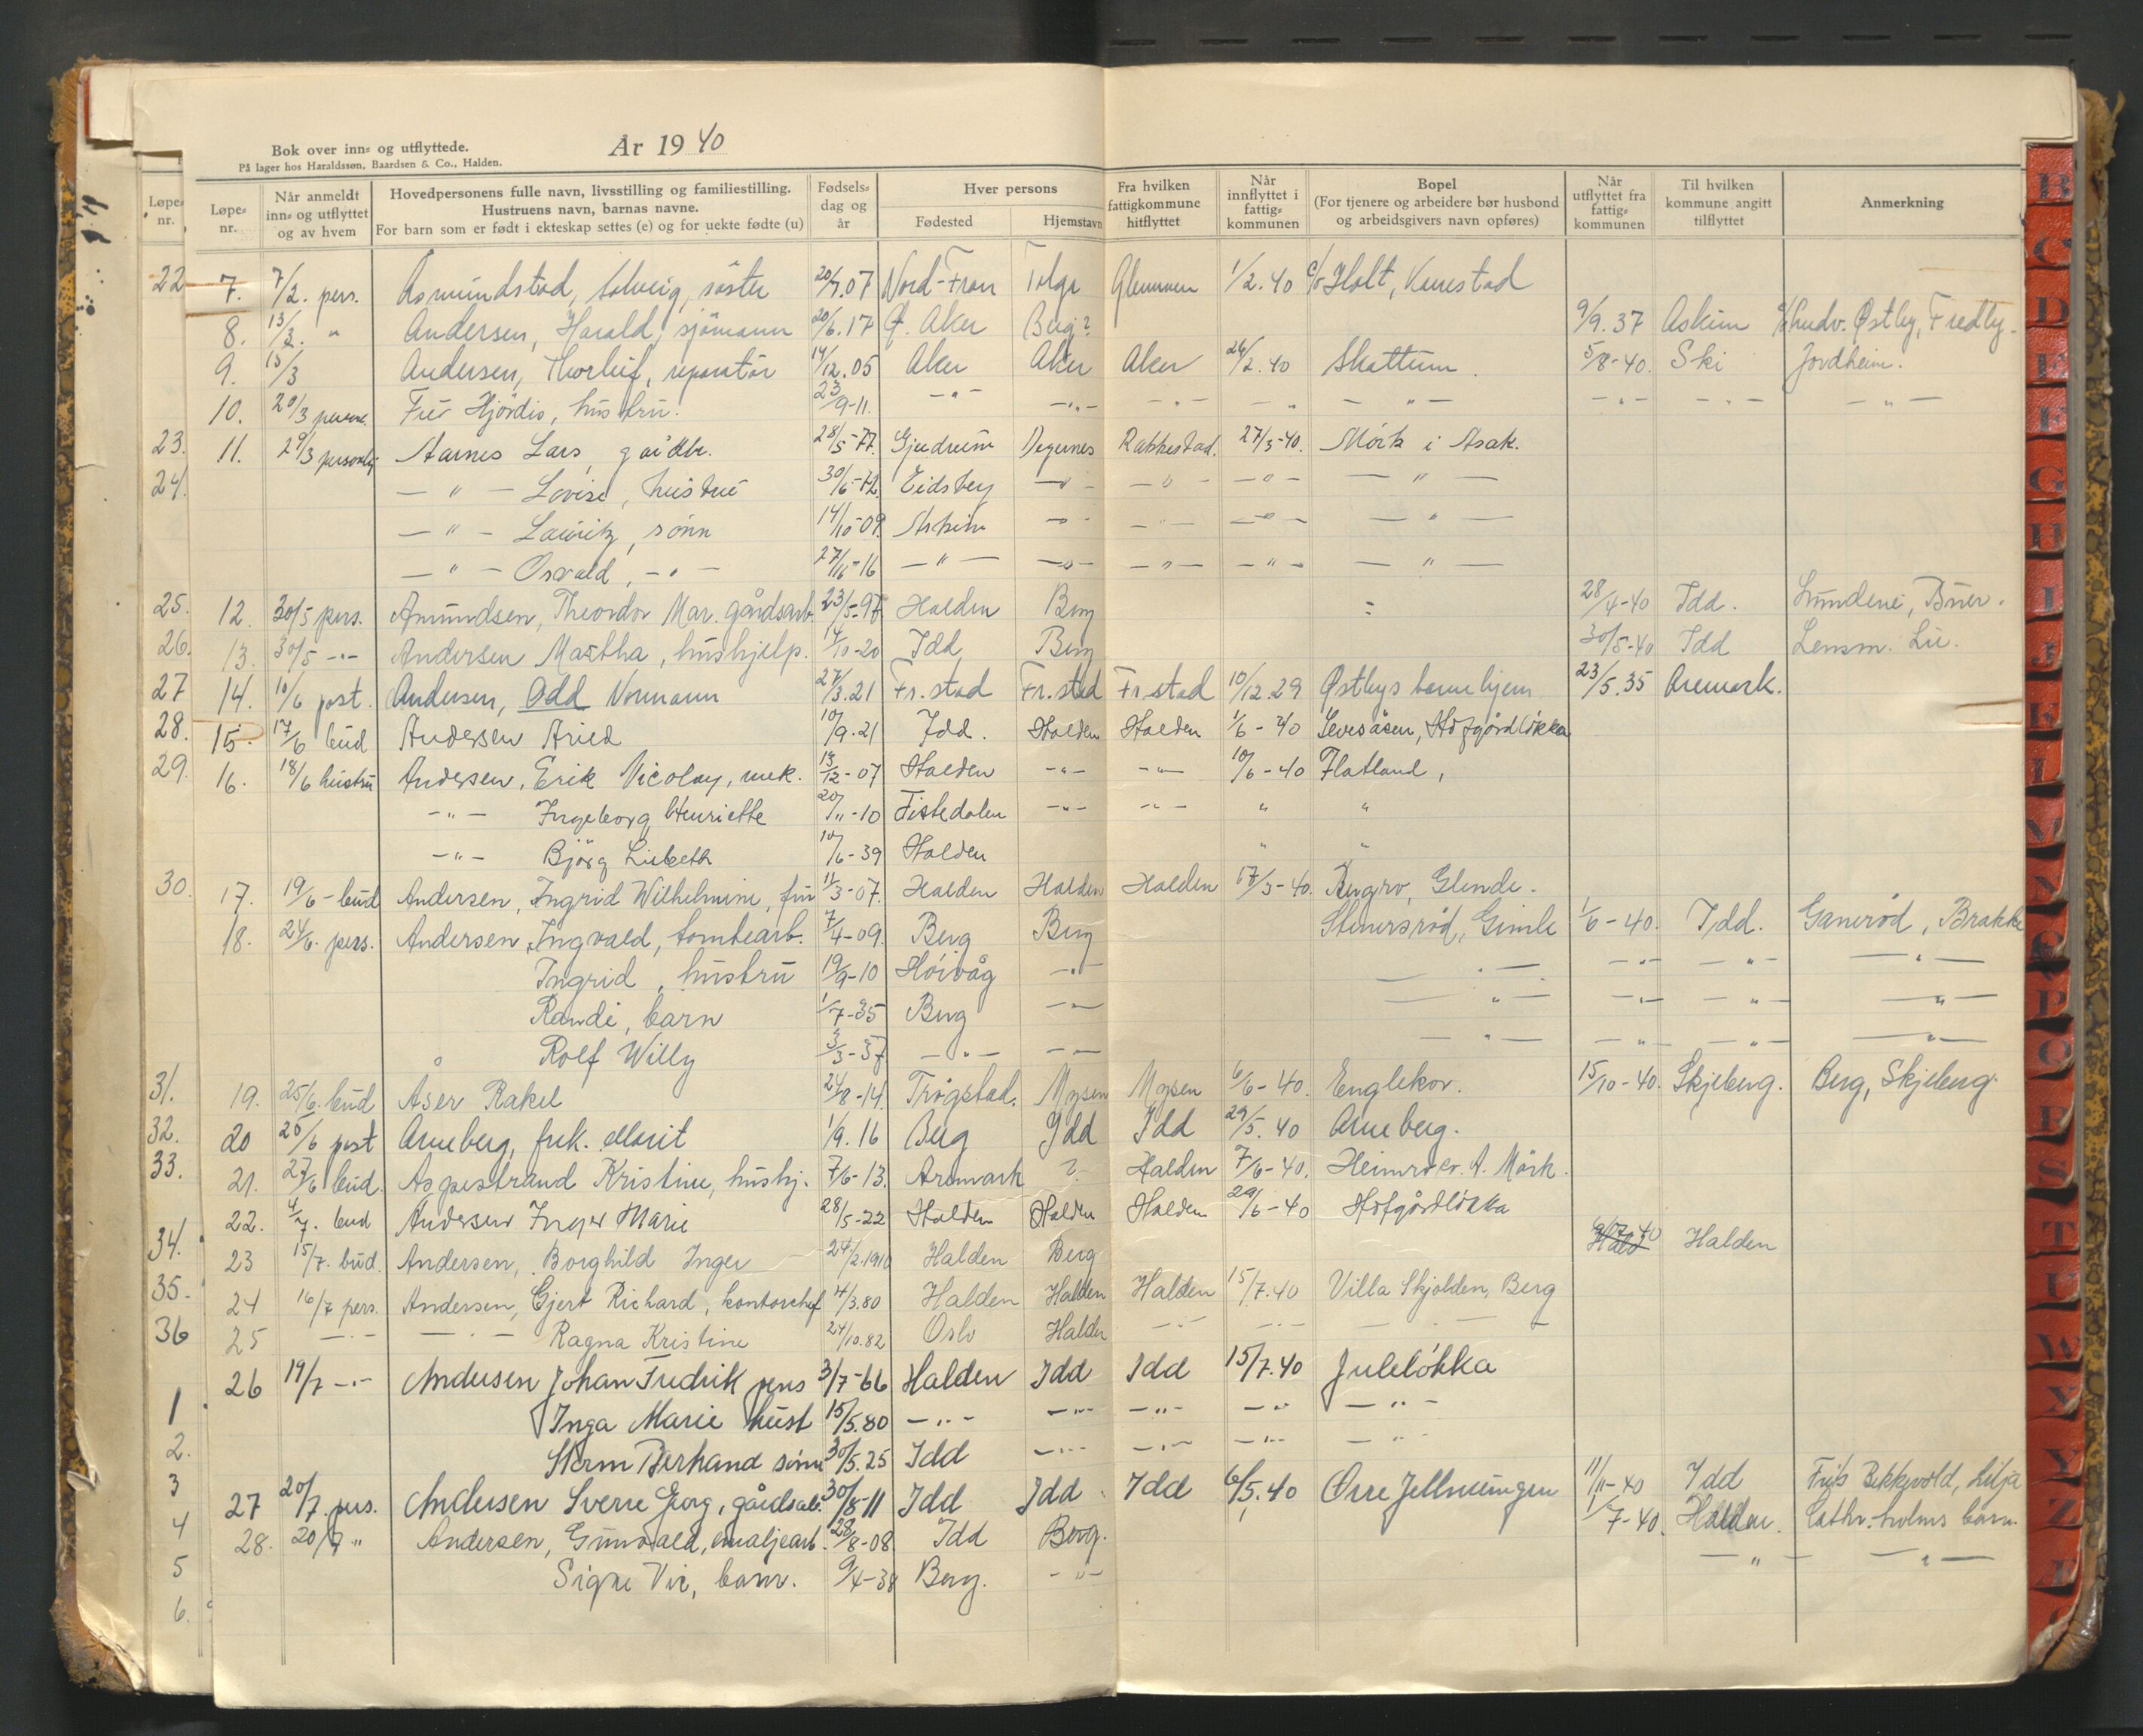 Bok over inn- og utflyttede.
På lager hos Haraldssøn, Baardsen & Co., Halden.
År 1940
Løpe-nr. Når anmeldt inn- og utflyttet og av hvem Hovedpersonens fulle navn, livsstilling og familiestilling. Hustruens navn, barnas navne. For barn som er født i ekteskap settes (e) og for uekte fødte (u) Fødsels-dag og år Hver persons Fødested Hjemstavn Fra hvilken fattigkommune hitflyttet Når innflyttet i fattig-kommunen Bopel (For tjenere og arbeidere bør husbond og arbeidsgivers navn opføres) Når utflyttet fra fattig-kommunen Til hvilken kommune angitt tilflyttet Anmerkning
Løpe-nr.
22 7. 7/2. pers. Asmundstad, Solveig, søster 20/7.07 Nord-Fron Tolga Glemmen 1/2.40 c/o Holt,
8. 13/3. " Andersen, Harald, sjömann 20/6.17 Ø. Aker Berg? 9/9.37 Askim c/o Ludv. Østby, Fredly.
9. 15/3 Andersen, Thorleif, reparatör 14/12.05 Aker Aker Aker 26/2.40 Skattum. 5/8-40. Ski Jordheim.
10. 20/3 Fru Hjördis, hustru. 23/9-11. -"- -"- -"- -"- -"- -"- -"- -"-
23. 11. 29/3 personlig Aarnes Lars, gårdbr. 28/5-77. Gjerdrum Degernes Rakkestad. 27/3-40. Mörk i Asak.
24. -"- Lovise, hustru 30/6-72. Eidsberg -"- -"- -"- -"-
-"- Lauritz, sönn 14/10-09. Askim -"- -"- -"- -"-
-"- Osvald, -"- 27/11-16 -"- -"- -"- -"- -"-
25. 12. 30/5 pers. Amundsen, Theordor Mar. gårdsarb. 23/5-97 Halden Berg 28/4-40 Idd.
26. 13. 30/5 -"- Andersen Martha, hushjelp. 14/10-20 Idd Berg 30/5-40 Idd Lensm. Lie.
27 14. 10/6 post. Andersen, Odd Normann 27/3.21 Fr.stad Fr.stad Fr.stad 10/12.29 Østbys barnehjem 23/5.35 Aremark.
28. 15. 17/6 bud Andersen Arild 10/9.21 Idd. Halden Halden 1/6-40 Hofgårdløkka
29. 16. 18/6 hustru Andersen, Erik Nicolay, mek. 13/12-07 Halden -"- -"- 10/6-40 Flatland,
-"- Ingeborg Henriette 20/11-10 Tistedalen -"- -"- " "
-"- Björg Lisbeth 10/6-39 Halden " "
30. 17. 19/6-bud Andersen, Ingrid Wilhelmine, fru 11/3-07. Halden Halden Halden 17/3-40. Bergro, Glende.
18. 24/6. pers. Andersen, Ingvald, tomtearb. 7/4-09. Berg Berg Stenersrød, Gimle 1/6-40. Idd. Ganerød, Brakke
Ingrid, hustru 19/9-10 Høivåg -"- -"- -"- -"- -"-
Randi, barn 1/7-35 Berg -"- -"- -"- -"- -"-
Rolf Willy 3/3-37 -"- -"- -"- -"- -"- -"-
31. 19. 25/6. bud Åser Rakel 24/8-14. Trøgstad. Mysen Mysen 6/6-40. Englekor. 15/10-40. Skjeberg. Berg, Skjeberg.
32. 20 26/6 post Arneberg, frk. Marit 1/9.16 Berg Idd Idd 29/5.40 Arneberg.
33. 21. 27/6 bud. Aspestrand Kristine, hushj. 7/6-13. Aremark ? Halden 7/6-40. Heimro A. Mörk.
22. 4/7. bud Andersen Inger Marie 28/5-22 Halden Halden Halden 29/6-40 Hofgårdløkka
34. 23 15/7. bud. Andersen, Borghild Inger 24/2.1910 Halden Berg Halden
35. 24 16/7 pers. Andersen, Gjert Richard, kontorchef 4/3.80 Halden Halden Halden 15/7.40 Villa Skjolden, Berg
36 25 -"- -"- Ragna Kristine 24/10.82 Oslo Halden -"- -"- -"-
26 19/7 -"- Andersen Johan Fredrik pens 3/7-66 Halden Idd Idd 15/7.40 Juleløkka
1 Inga Marie hust 15/5.80 -"- -"- -"- -"- -"-
2. Storm Berhand sönn 30/5.25 Idd -"- -"- -"- -"-
3 27 20/7. pers. Andersen Sverre Georg, gårdsarb. 30/8-11 Idd Idd Idd 6/5.40 Øvre 11/11-40 Idd
4 28. 20/7 " Andersen, Gunvald, emaljearb. 28/8-08 Idd Berg. 1/7-40. Halden.
5 Signe Vie, barn. 9/4-38 Berg. -"- -"- -"-
6.
B C D E F G H I J P S T U W X Y Z